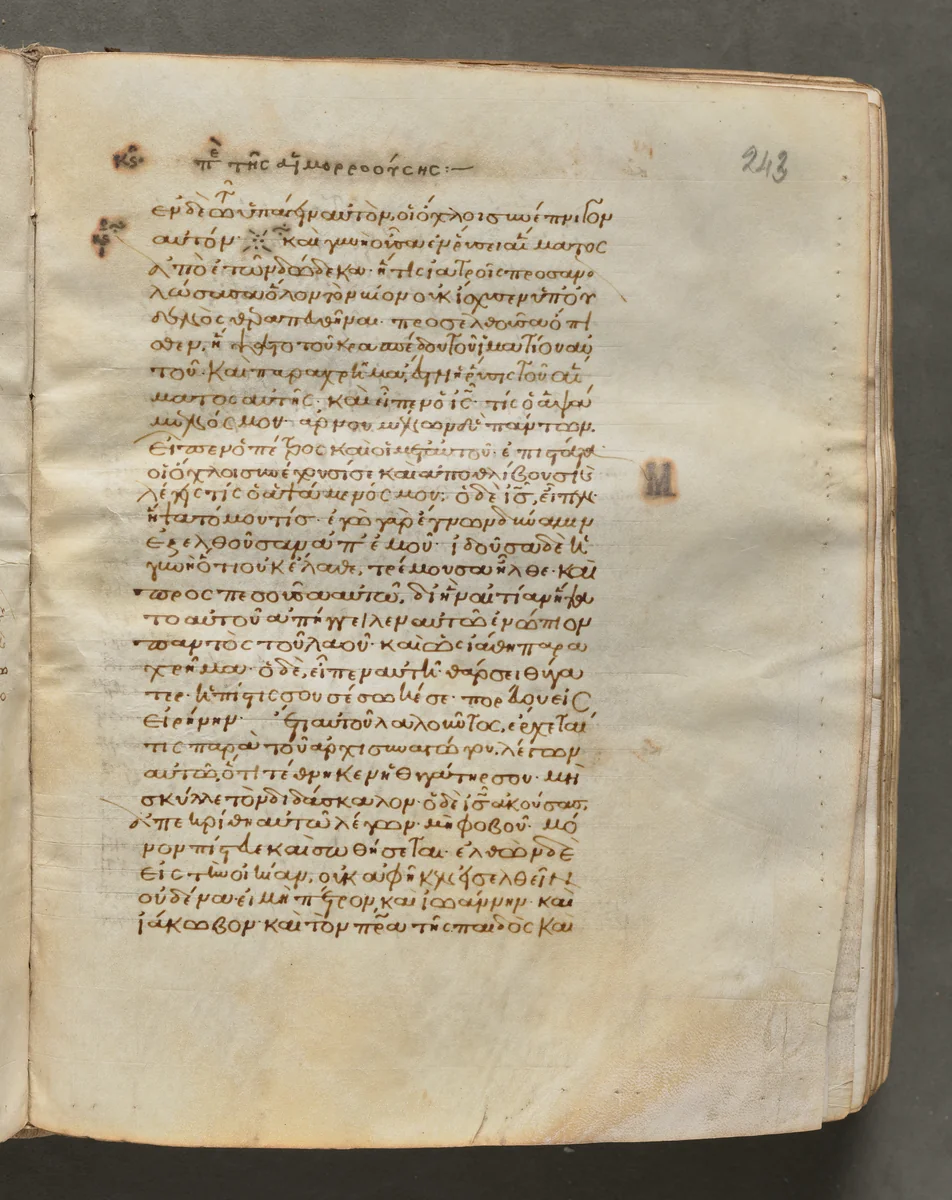 κϛ πε της αἱμορροούσης:—
243
ἐν δὲ τῶ ὑπάγειν αὐτὸν, οἱ ὄχλοι συνέπνιγον
αὐτόν· καὶ γυνὴ οὖσα ἐν ῥύσει αἵματος
ἀπὸ ἐτῶν δώδεκα· ἥτις ἰατροῖς προσανα
λώσασα ὅλον τὸν βίον οὐκ ἴσχυσεν ὑπ' οὐ
δενὸς θεραπευθῆναι· προσελθοῦσα ὄπι
σθεν, ἥψατο τοῦ κρασπέδου τοῦ ἱματίου αὐ
τοῦ· καὶ παραχρῆμα ἔστη ἡ ῥύσις τοῦ αἵ
ματος αὐτῆς· καὶ εἶπεν ὁ ἰς· τίς ὁ ἁψά
μενός μου· ἀρνουμένων δὲ πάντων,
εἶπεν ὁ πέτρος καὶ οἱ μετ' αὐτοῦ· ἐπιστάτα
οἱ ὄχλοι συνέχουσί σε καὶ ἀποθλίβουσιν
λέγεις τίς ὁ ἁψάμενός μου; ὁ δὲ ἰς, εἶπεν·
ἥψατό μου τίς· ἐγὼ γὰρ ἔγνων δύναμιν
ἐξελθοῦσαν ἀπ' ἐμοῦ· ἰδοῦσα δὲ ἡ
γυνὴ ὅτι οὐκ ἔλαθε, τρέμουσα ἦλθε· καὶ
προσπεσοῦσα αὐτῶ, δι' ἣν αἰτίαν ἥψα
το αὐτοῦ ἀπήγγειλεν αὐτῶ ἐνώπιον
παντὸς τοῦ λαοῦ· καὶ ὡς ἰάθη παρα
χρῆμα· ὁ δὲ, εἶπεν αὐτῆ· θάρσει θύγα
τερ· ἡ πίστις σου σέσωκέ σε· πορεύου εἰς
εἰρήνην· ἔτι αὐτοῦ λαλοῦντος, ἔρχεταί
τις παρὰ τοῦ ἀρχισυναγώγου, λέγων
αὐτῶ, ὅτι τέθνηκεν ἡ θυγάτηρ σου· μὴ
σκύλλε τὸν διδάσκαλον· ὁ δὲ ἰς ἀκούσας,
ἀπεκρίθη αὐτῶ λέγων· μὴ φοβοῦ· μό
νον πίστευε καὶ σωθήσεται· ἐλθὼν δὲ
εἰς τὴν οἰκίαν, οὐκ ἀφῆκεν εἰσελθεῖν
οὐδένα· εἰ μὴ πέτρον, καὶ ἰωάννην· καὶ
ἰάκωβον· καὶ τὸν πρα τῆς παιδὸς καὶ